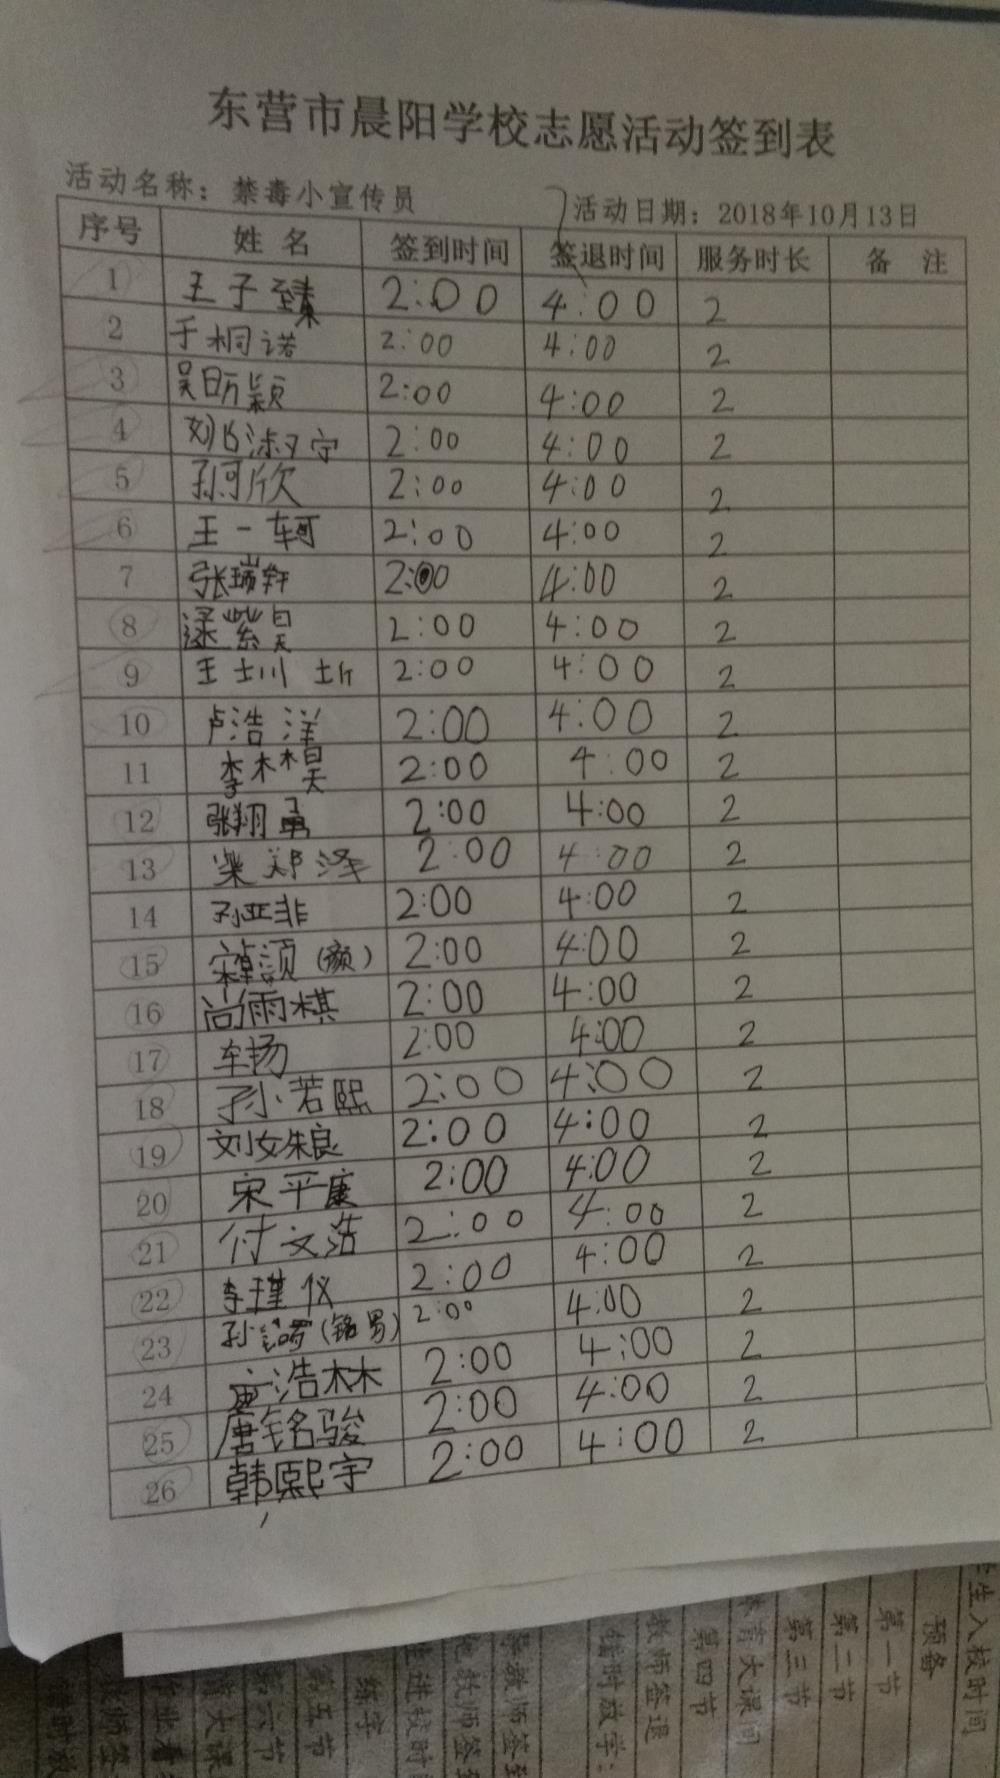 东营市晨阳学校志愿活动签到表
活动名称：禁毒小宣传员 活动日期：2018年10月13日
序号 姓名 签到时间 签退时间 服务时长 备注
1 王子臻 2:00 4:00 2
2 于桐诺 2:00 4:00 2
3 吴昕颖 2:00 4:00 2
4 刘淑宁 2:00 4:00 2
5 孙可欣 2:00 4:00 2
6 王一轲 2:00 4:00 2
7 张瑞轩 2:00 4:00 2
8 逯紫昊 2:00 4:00 2
9 王圳圻 2:00 4:00 2
10 卢浩洋 2:00 4:00 2
11 李林昊 2:00 4:00 2
12 张翔勇 2:00 4:00 2
13 柴郑泽 2:00 4:00 2
14 孙亚非 2:00 4:00 2
15 2:00 4:00 2
16 尚雨棋 2:00 4:00 2
17 车扬 2:00 4:00 2
18 孙若熙 2:00 4:00 2
19 刘姝良 2:00 4:00 2
20 宋平康 2:00 4:00 2
21 付文浩 2:00 4:00 2
22 李瑾仪 2:00 4:00 2
23 孙 2:00 4:00 2
24 浩林 2:00 4:00 2
25 唐铭骏 2:00 4:00 2
26 韩熙宇 2:00 4:00 2
学生入校时间
预备
第一节
第二节
第三节
体育大课间
第四节
教师签退
第五节
第六节